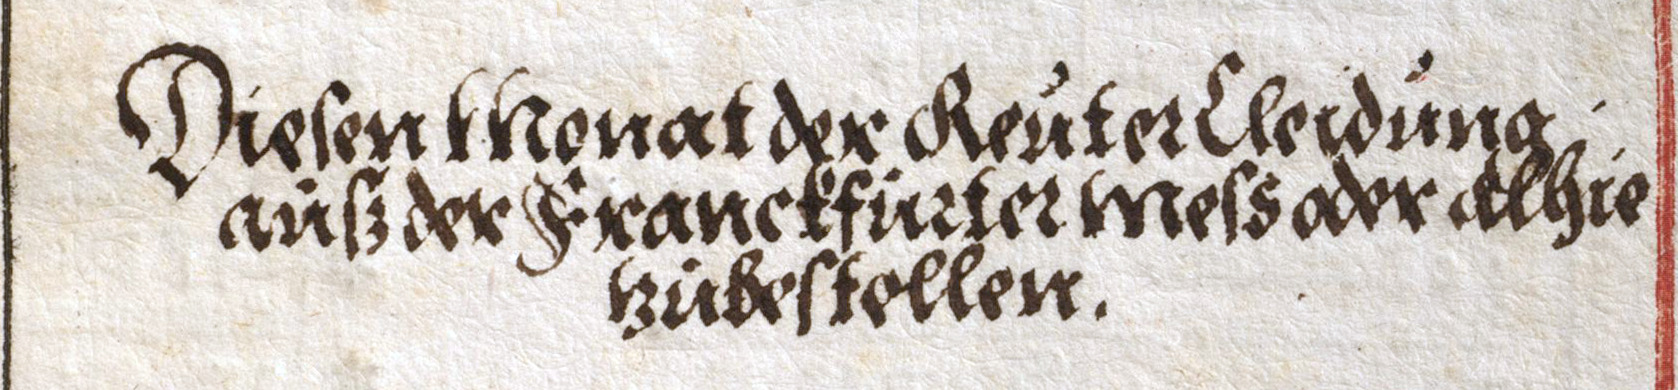 Diesen Monat der Reuter Cleidung
auß der Franckfurter Mess oder Alhie
zubestellen.